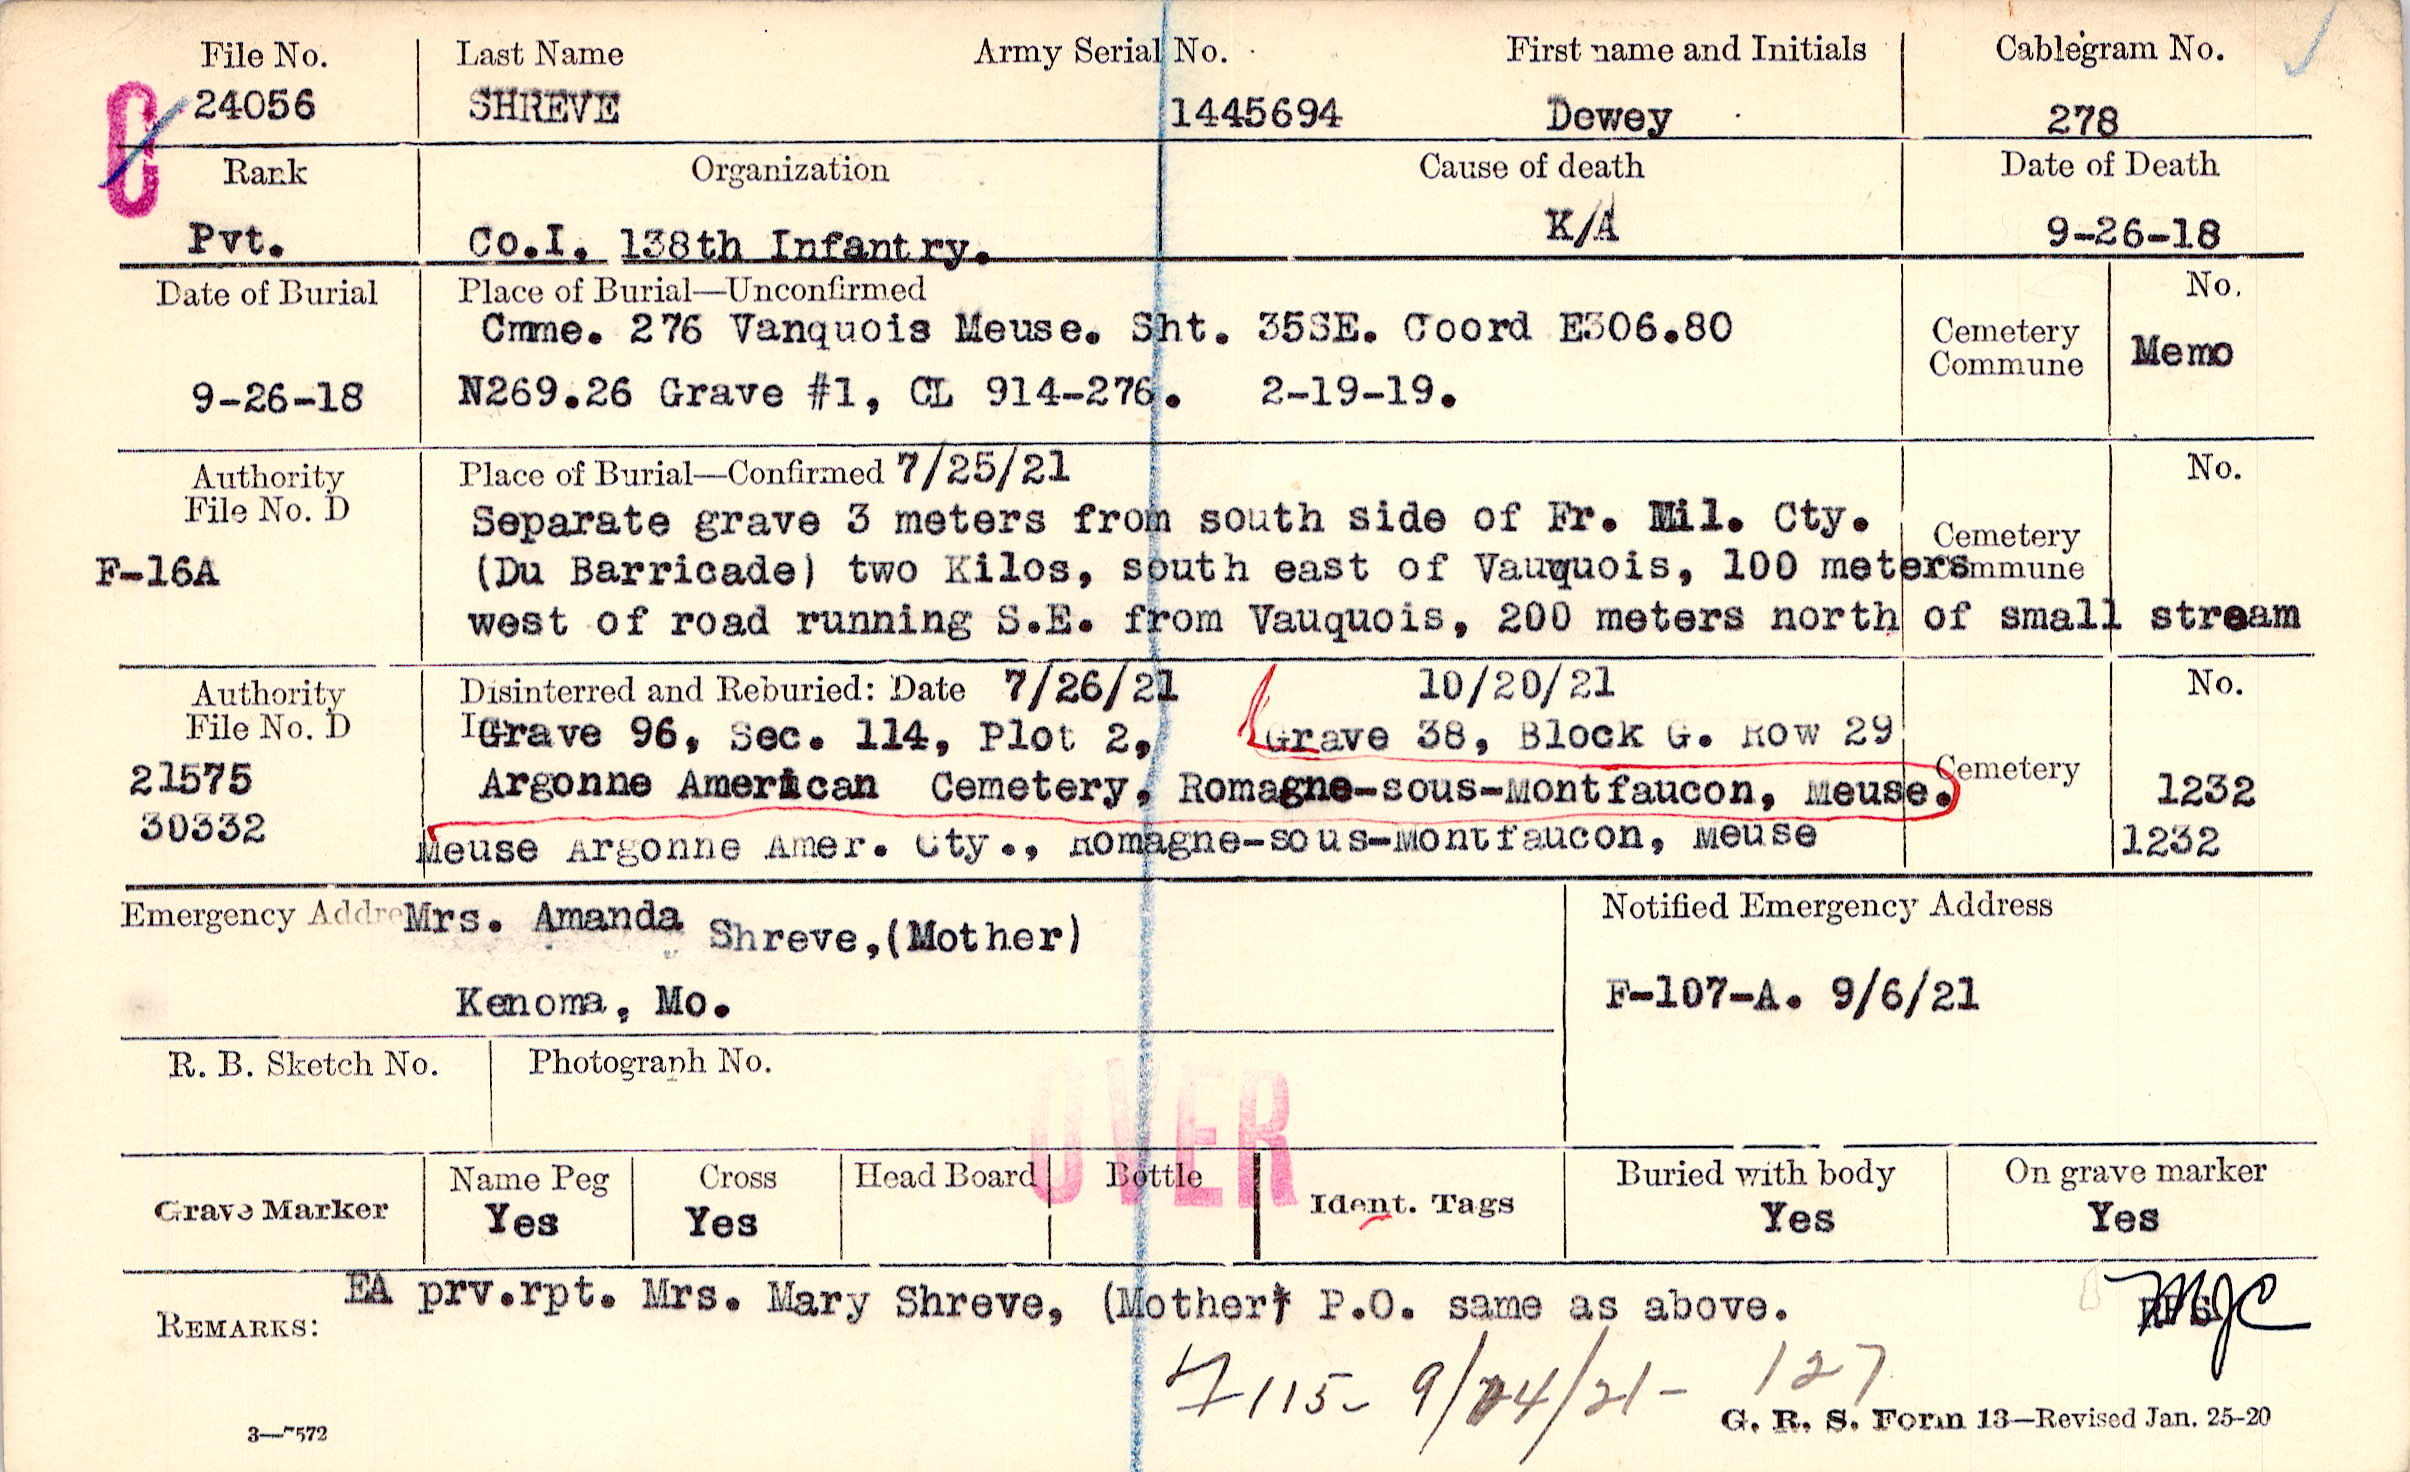 File No. Last Name Army Serial No. First name and Initials Cablegram No.
C 24056 SHREVE 1445694 Dewey 278
Rank Organization Cause of death Date of Death
Pvt. Co.I. 138th Infantry. K/A 9-26-18
Date of Burial Place of Burial—Unconfirmed No.
Cmme. 276 Vanquois Meuse. Sht. 35SE. Coord E306.80
Cemetery
Commune Memo
9-26-18 N269.26 Grave #1, CL 914-276. 2-19-19.
Authority Place of Burial—Confirmed 7/25/21 No.
File No. D Separate grave 3 meters from south side of Fr. Mil. Cty.
Cemetery
F-16A (Du Barricade) two Kilos, south east of Vauquois, 100 meters Commune
west of road running S.E. from Vauquois, 200 meters north of small stream
Authority Disinterred and Reburied: Date 7/26/21 10/20/21 No.
File No. D Grave 96, Sec. 114, Plot 2, Grave 38, Block G. Row 29
Cemetery
21575 Argonne American Cemetery, Romagne-sous-Montfaucon, Meuse. 1232
30332 Meuse Argonne Amer. Cty., Romagne-sous-Montfaucon, Meuse 1232
Emergency Addre Mrs. Amanda Shreve,(Mother) Notified Emergency Address
Kenoma, Mo. F-107-A. 9/6/21
R. B. Sketch No. Photograph No.
OVER
Grave Marker Name Peg Cross Head Board Bottle Ident. Tags Buried with body On grave marker
Yes Yes Yes Yes
EA prv.rpt. Mrs. Mary Shreve, (Mother) P.O. same as above.
REMARKS: MJC
115- 9/24/21- 127
3—7572 G. R. S. Form 13—Revised Jan. 25-20